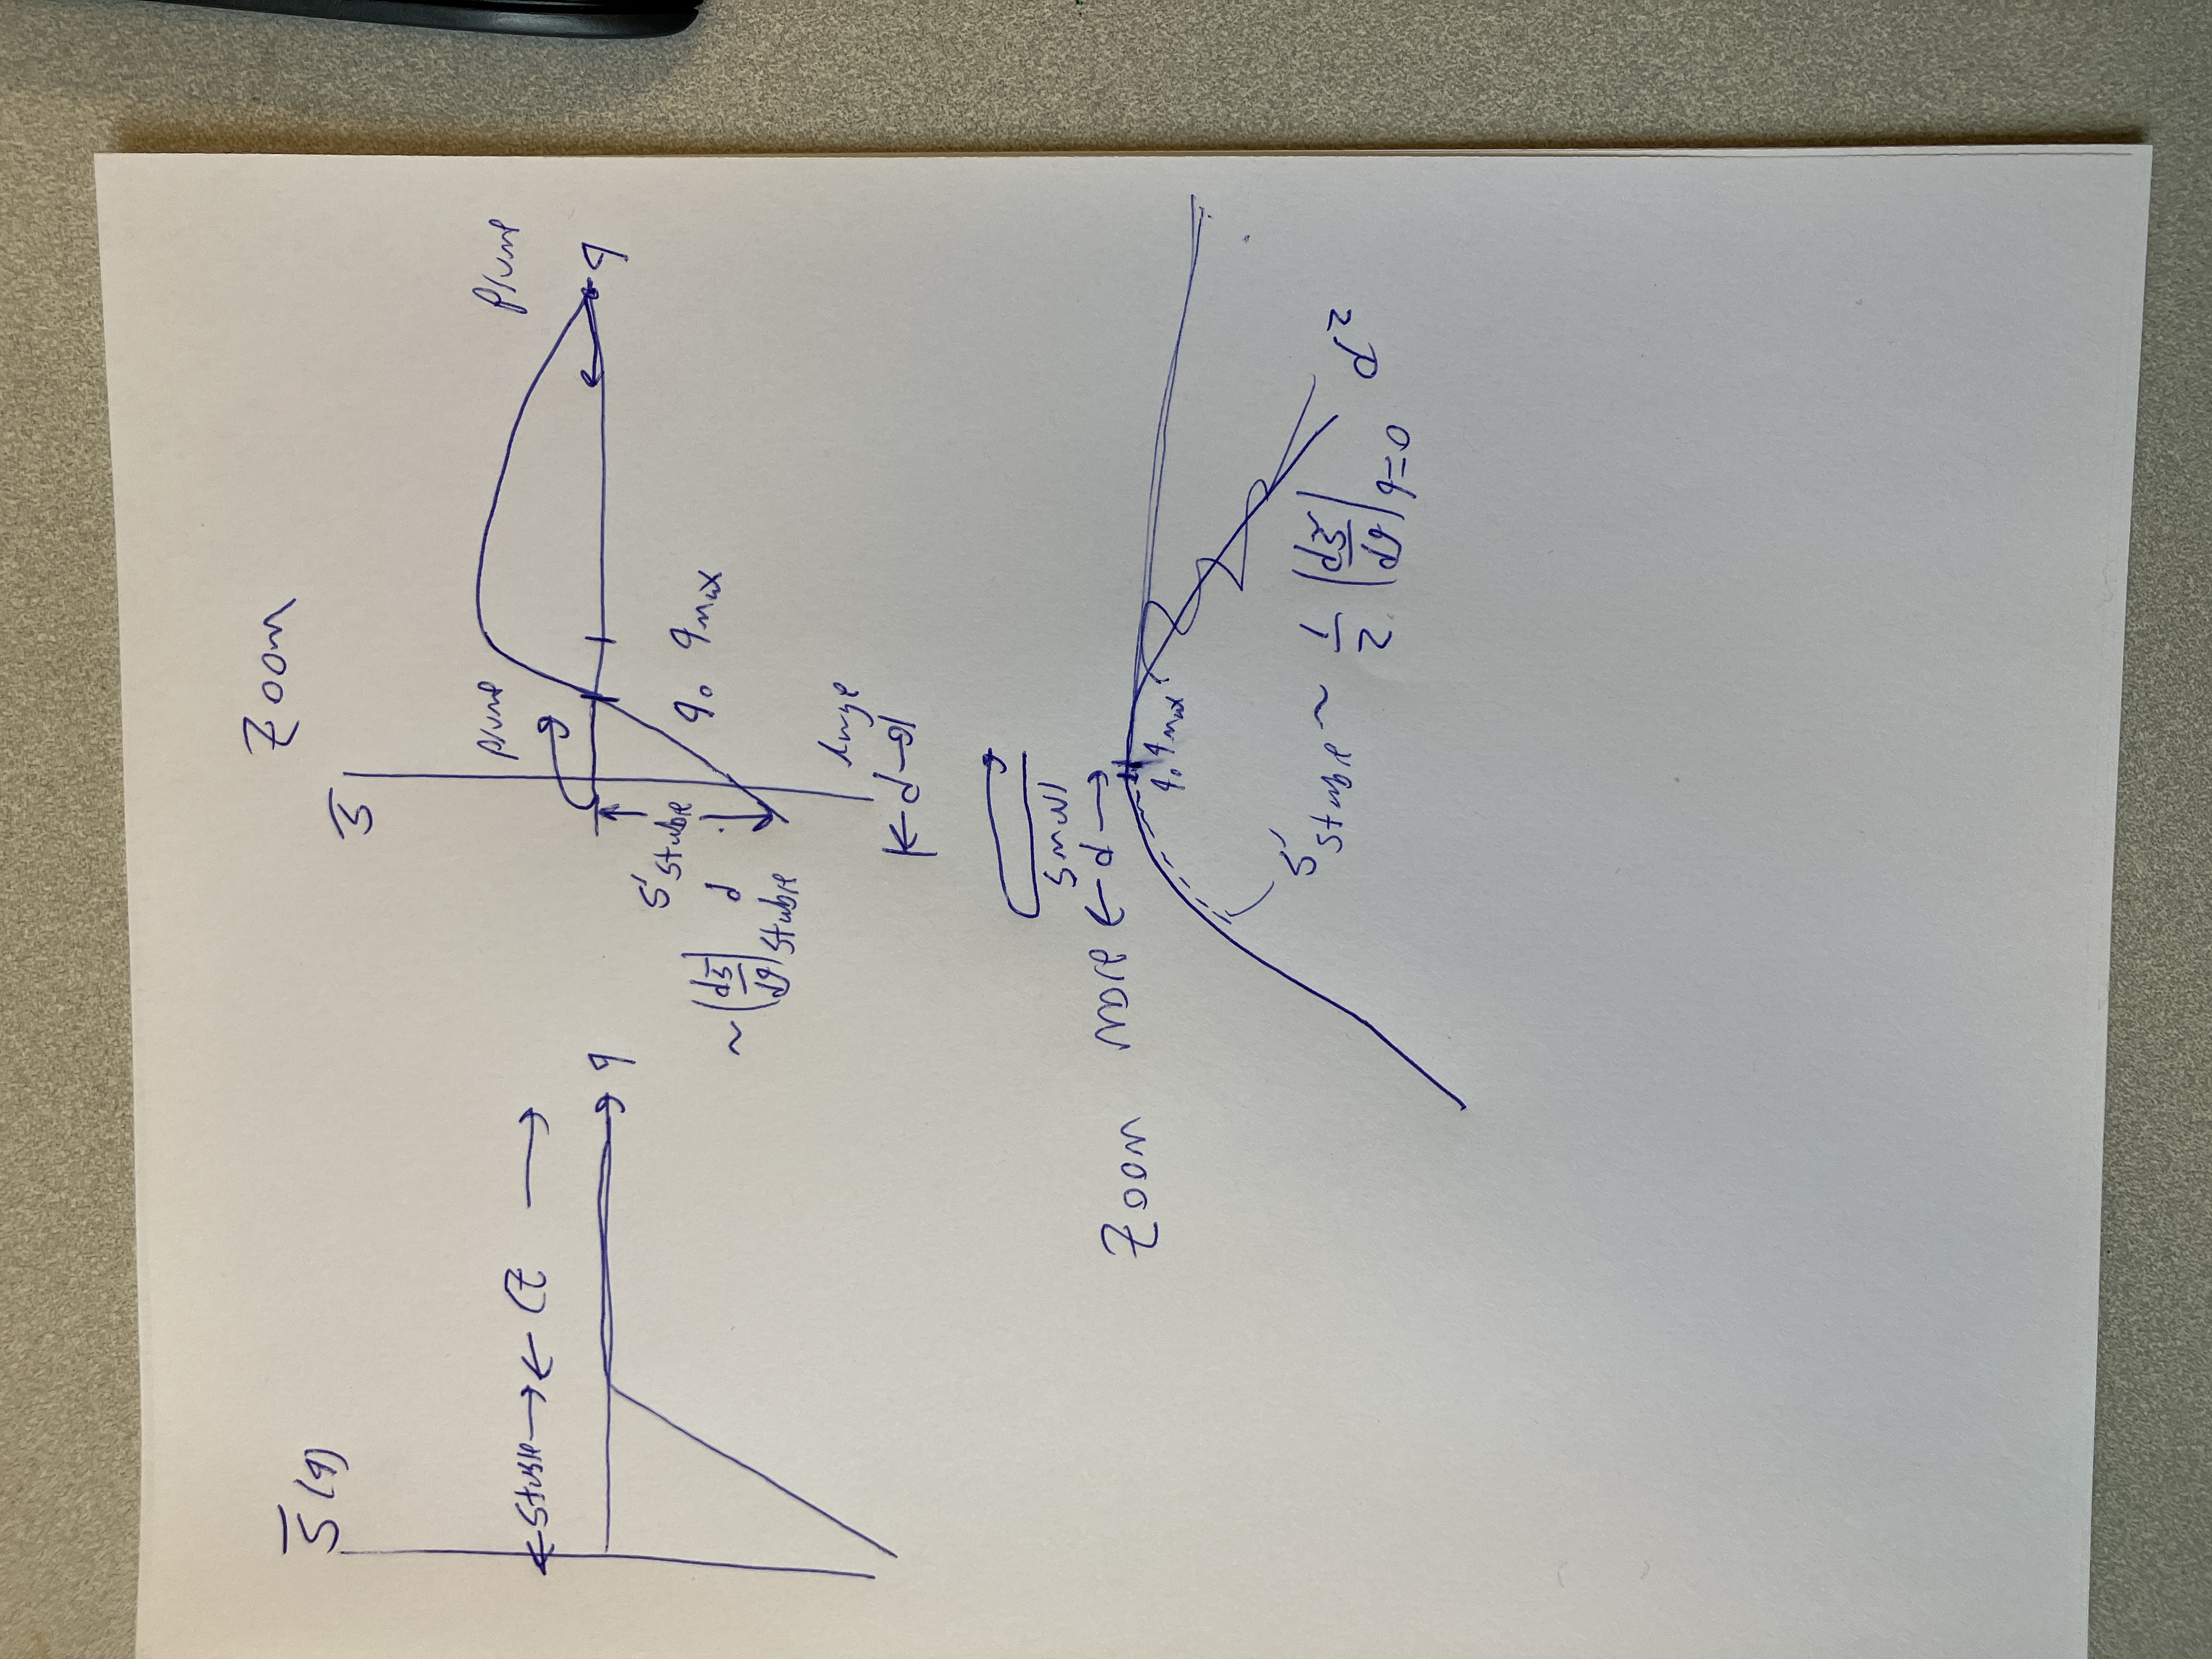 S̄(q)
← stable → ← CZ →
q
Zoom
S̄
plume
plume
q
S'stable
~ (dS̄/dq)stable d
q₀ qmax
large
|← d →|
small
Zoom more ← d →
q₀ qmax
S'stable ~ 1/2 (dS̄/dq)q=0 d²